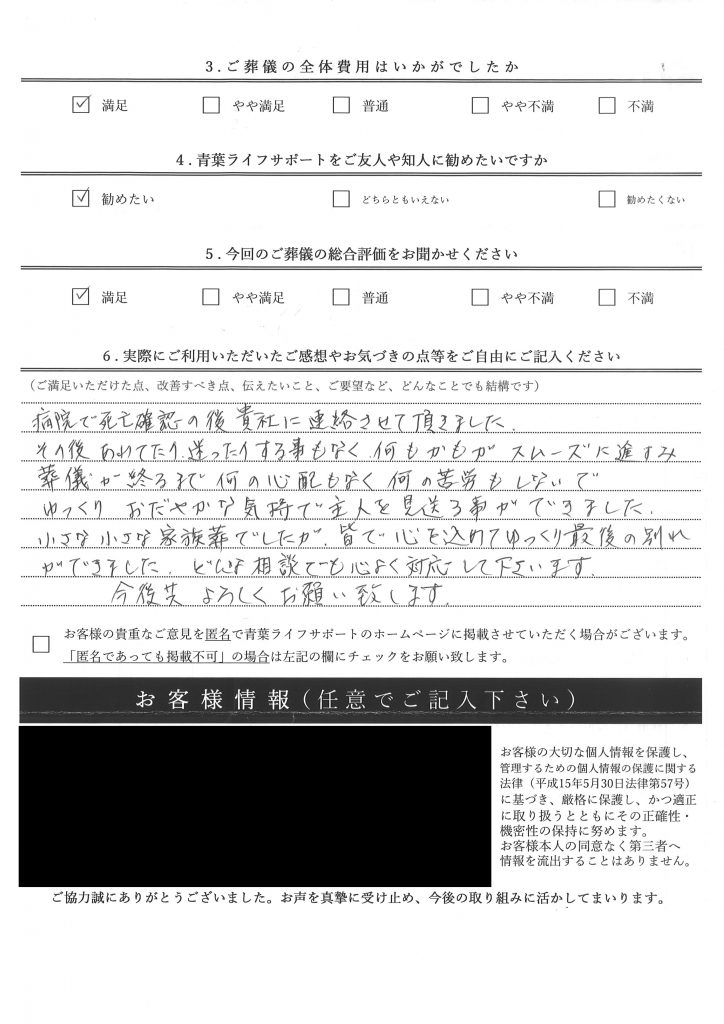 3.ご葬儀の全体費用はいかがでしたか
満足 やや満足 普通 やや不満 不満
4.青葉ライフサポートをご友人や知人に勧めたいですか
勧めたい どちらともいえない 勧めたくない
5.今回のご葬儀の総合評価をお聞かせください
満足 やや満足 普通 やや不満 不満
6.実際にご利用いただいたご感想やお気づきの点等をご自由にご記入ください
(ご満足いただけた点、改善すべき点、伝えたいこと、ご要望など、どんなことでも結構です)
病院で死亡確認の後貴社に連絡させて頂きました.
その後あわてたり迷ったりする事もなく.何もかもがスムーズに進すみ
葬儀が終るまで何の心配もなく何の苦労もしないで
ゆっくりおだやかな気持で主人を見送る事ができました.
小さな小さな家族葬でしたが.皆で心を込めてゆっくり最後の別れ
ができました.どんな相談でも心よく対応して下さいます.
今後共よろしくお願い致します.
お客様の貴重なご意見を匿名で青葉ライフサポートのホームページに掲載させていただく場合がございます。
「匿名であっても掲載不可」の場合は左記の欄にチェックをお願い致します。
お客様情報(任意でご記入下さい)
お客様の大切な個人情報を保護し、
管理するための個人情報の保護に関する
法律(平成15年5月30日法律第57号)
に基づき、厳格に保護し、かつ適正
に取り扱うとともにその正確性・
機密性の保持に努めます。
お客様本人の同意なく第三者へ
情報を流出することはありません。
ご協力誠にありがとうございました。お声を真摯に受け止め、今後の取り組みに活かしてまいります。